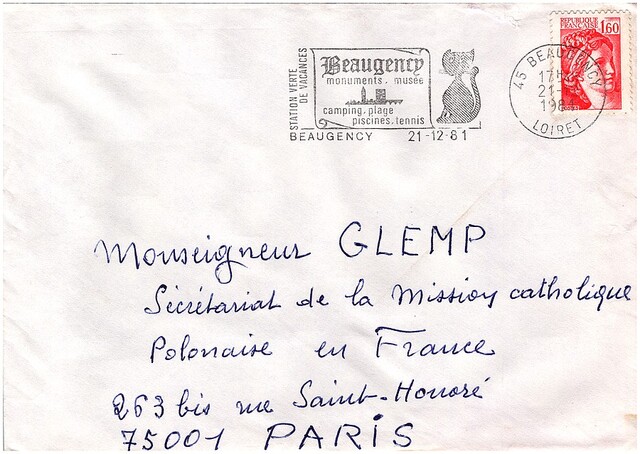 STATION VERTE
DE VACANCES
Beaugency
monuments. musée
camping. plage
piscines. tennis
BEAUGENCY 21-12-81
REPUBLIQUE
FRANÇAISE 1,60
45 BEAUGENCY
21-
LOIRET
Monseigneur GLEMP
Sécrétariat de la Mission catholique
Polonaise en France
263 bis rue Saint-Honoré
75001 PARIS